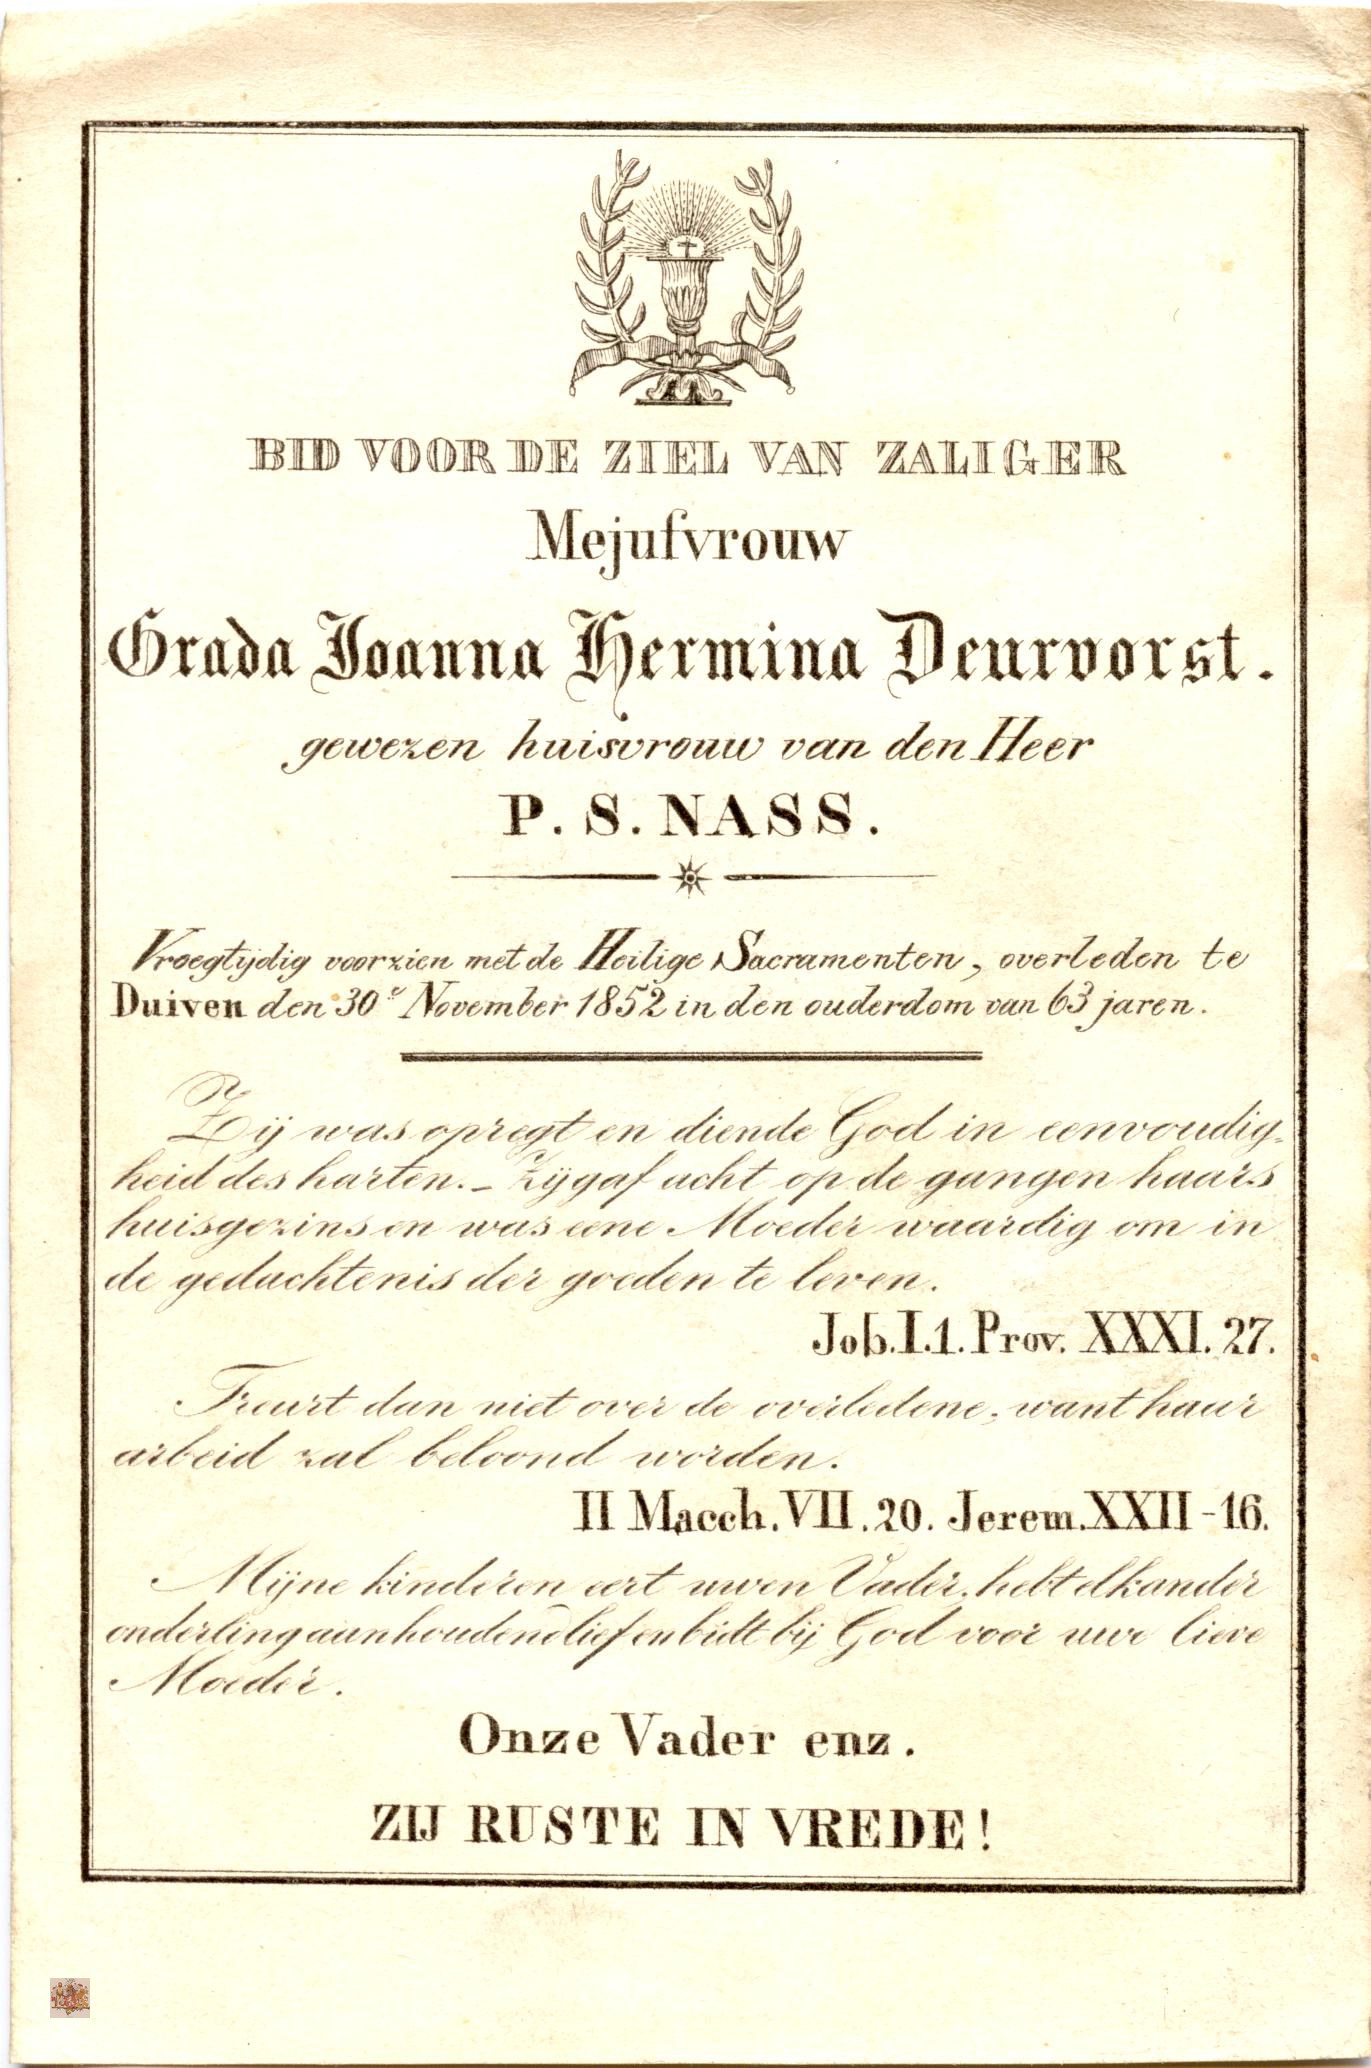 BID VOOR DE ZIEL VAN ZALIGER
Mejufvrouw
Grada Joanna Hermina Deurvorst.
gewezen huisvrouw van den Heer
P. S. NASS.
Vroegtijdig voorzien met de Heilige Sacramenten, overleden te
Duiven den 30e November 1852 in den ouderdom van 63 jaren.
Zij was opregt en diende God in eenvoudig-
heid des harten. – Zij gaf acht op de gangen haars
huisgezins en was eene Moeder waardig om in
de gedachtenis der goeden te leven.
Job. I. 1. Prov. XXXI. 27.
Treurt dan niet over de overledene, want haar
arbeid zal beloond worden.
II Macch. VII. 20. Jerem. XXII - 16.
Mijne kinderen eert uwen Vader, hebt elkander
onderling aanhoudend lief en bidt bij God voor uwe lieve
Moeder.
Onze Vader enz.
ZIJ RUSTE IN VREDE!